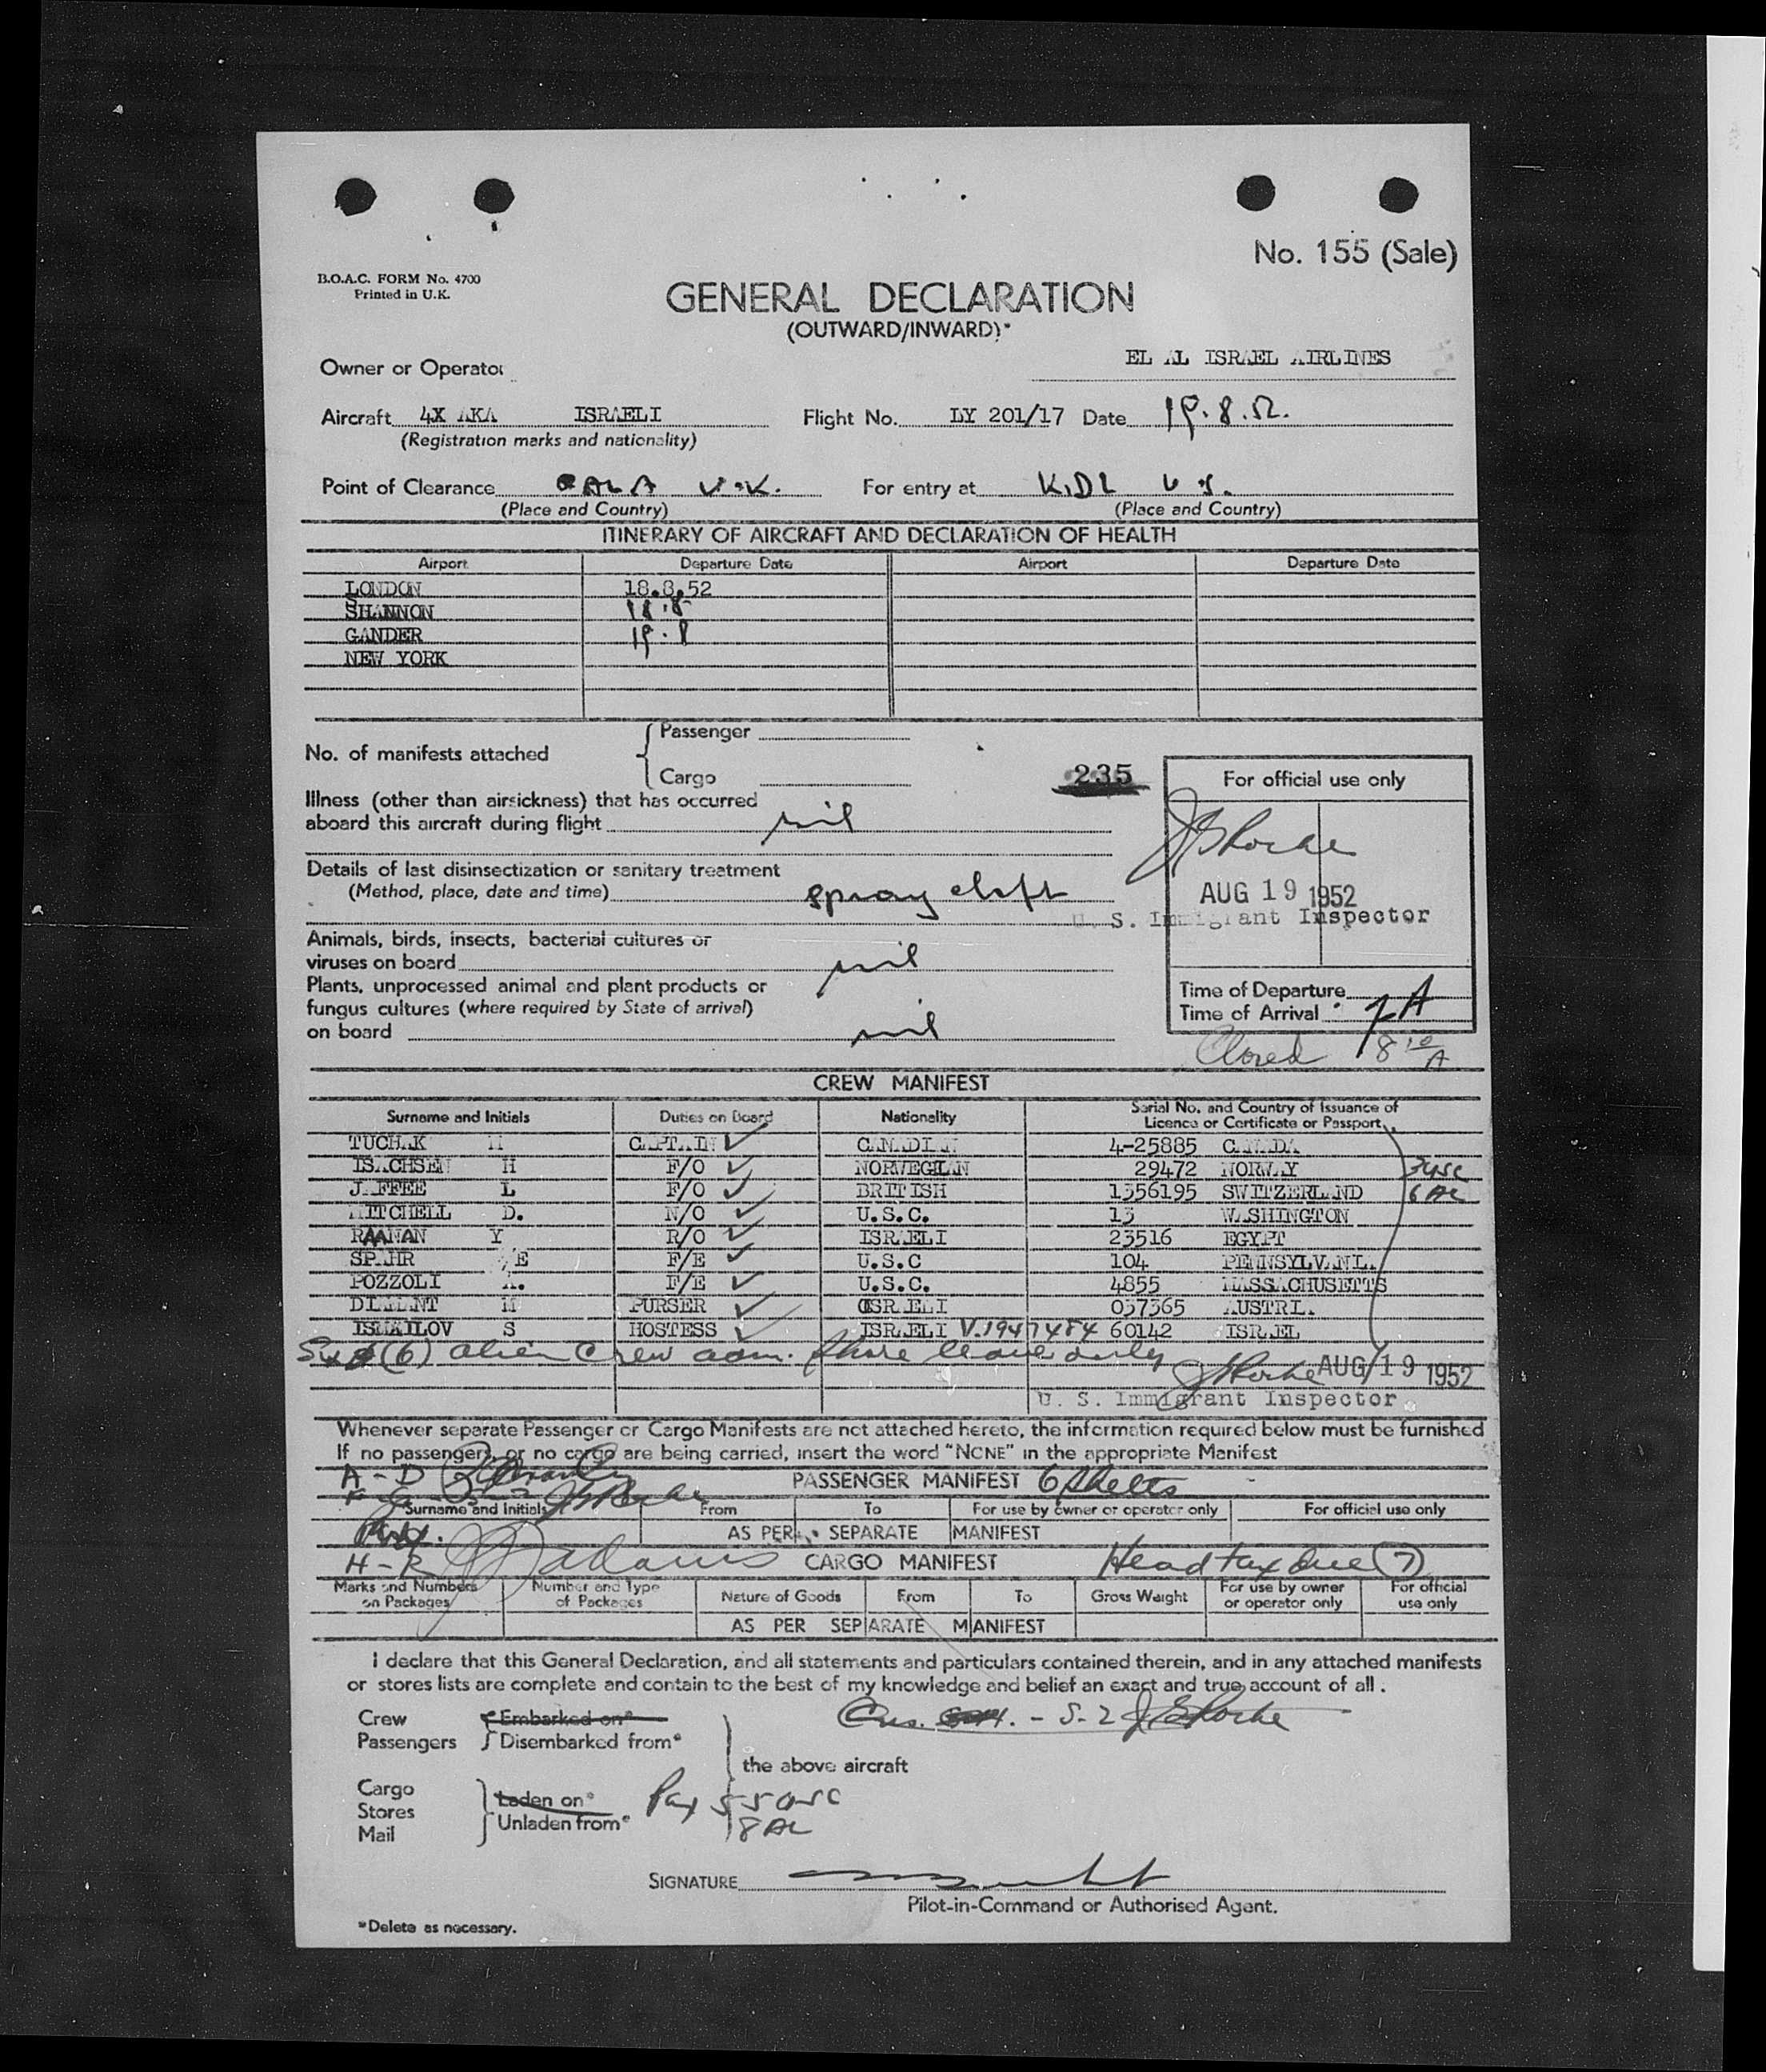 No. 155 (Sale)
B.O.A.C. FORM No. 4700
Printed in U.K.
GENERAL DECLARATION
(OUTWARD/INWARD)*
Owner or Operator EL AL ISRAEL AIRLINES
Aircraft 4X AKA ISRAELI Flight No. LY 201/17 Date 19.8.52.
(Registration marks and nationality)
Point of Clearance U.K. For entry at KIDL U.S.
(Place and Country) (Place and Country)
ITINERARY OF AIRCRAFT AND DECLARATION OF HEALTH
Airport Departure Date Airport Departure Date
LONDON 18.8.52
SHANNON 18.8
GANDER 19.8
NEW YORK
No. of manifests attached { Passenger
Cargo
235
For official use only
Illness (other than airsickness) that has occurred
aboard this aircraft during flight nil
Details of last disinsectization or sanitary treatment
(Method, place, date and time) spray
AUG 19 1952
U. S. Immigrant Inspector
Animals, birds, insects, bacterial cultures or
viruses on board nil
Plants, unprocessed animal and plant products or
fungus cultures (where required by State of arrival)
on board nil
Time of Departure
Time of Arrival 7A
Closed 8 10/A
CREW MANIFEST
Surname and Initials Duties on Board Nationality Serial No. and Country of Issuance of
Licence or Certificate or Passport
TUCHAK CAPTAIN CANADIAN 4-25885 CANADA
ISACHSEN H F/O NORWEGIAN 29472 NORWAY 3 USC
JAFFEE L F/O BRITISH 1356195 SWITZERLAND 6 AL
MITCHELL D. N/O U.S.C. 13 WASHINGTON
RAANAN Y R/O ISRAELI 23516 EGYPT
SPAHR E F/E U.S.C 104 PENNSYLVANIA
POZZOLI A. F/E U.S.C. 4855 MASSACHUSETTS
DIAMANT M PURSER ISRAELI 037365 AUSTRIA
ISMAILOV S HOSTESS ISRAELI V.1947484 60142 ISRAEL
Six (6) alien crew adm. shore leave only
AUG 19 1952
U. S. Immigrant Inspector
Whenever separate Passenger or Cargo Manifests are not attached hereto, the information required below must be furnished
If no passengers, or no cargo are being carried, insert the word "NONE" in the appropriate Manifest
A - D
PASSENGER MANIFEST 6 Sheets
Surname and Initials From To For use by owner or operator only For official use only
AS PER SEPARATE MANIFEST
H - R J Adams CARGO MANIFEST Head tax due (7)
Marks and Numbers on Packages Number and Type of Packages Nature of Goods From To Gross Weight For use by owner or operator only For official use only
AS PER SEPARATE MANIFEST
I declare that this General Declaration, and all statements and particulars contained therein, and in any attached manifests
or stores lists are complete and contain to the best of my knowledge and belief an exact and true account of all.
Crew Embarked on*
Passengers Disembarked from*
the above aircraft
Cargo
Stores Laden on*
Mail Unladen from*
Pax 55 USC
8 AL
SIGNATURE
Pilot-in-Command or Authorised Agent.
*Delete as necessary.